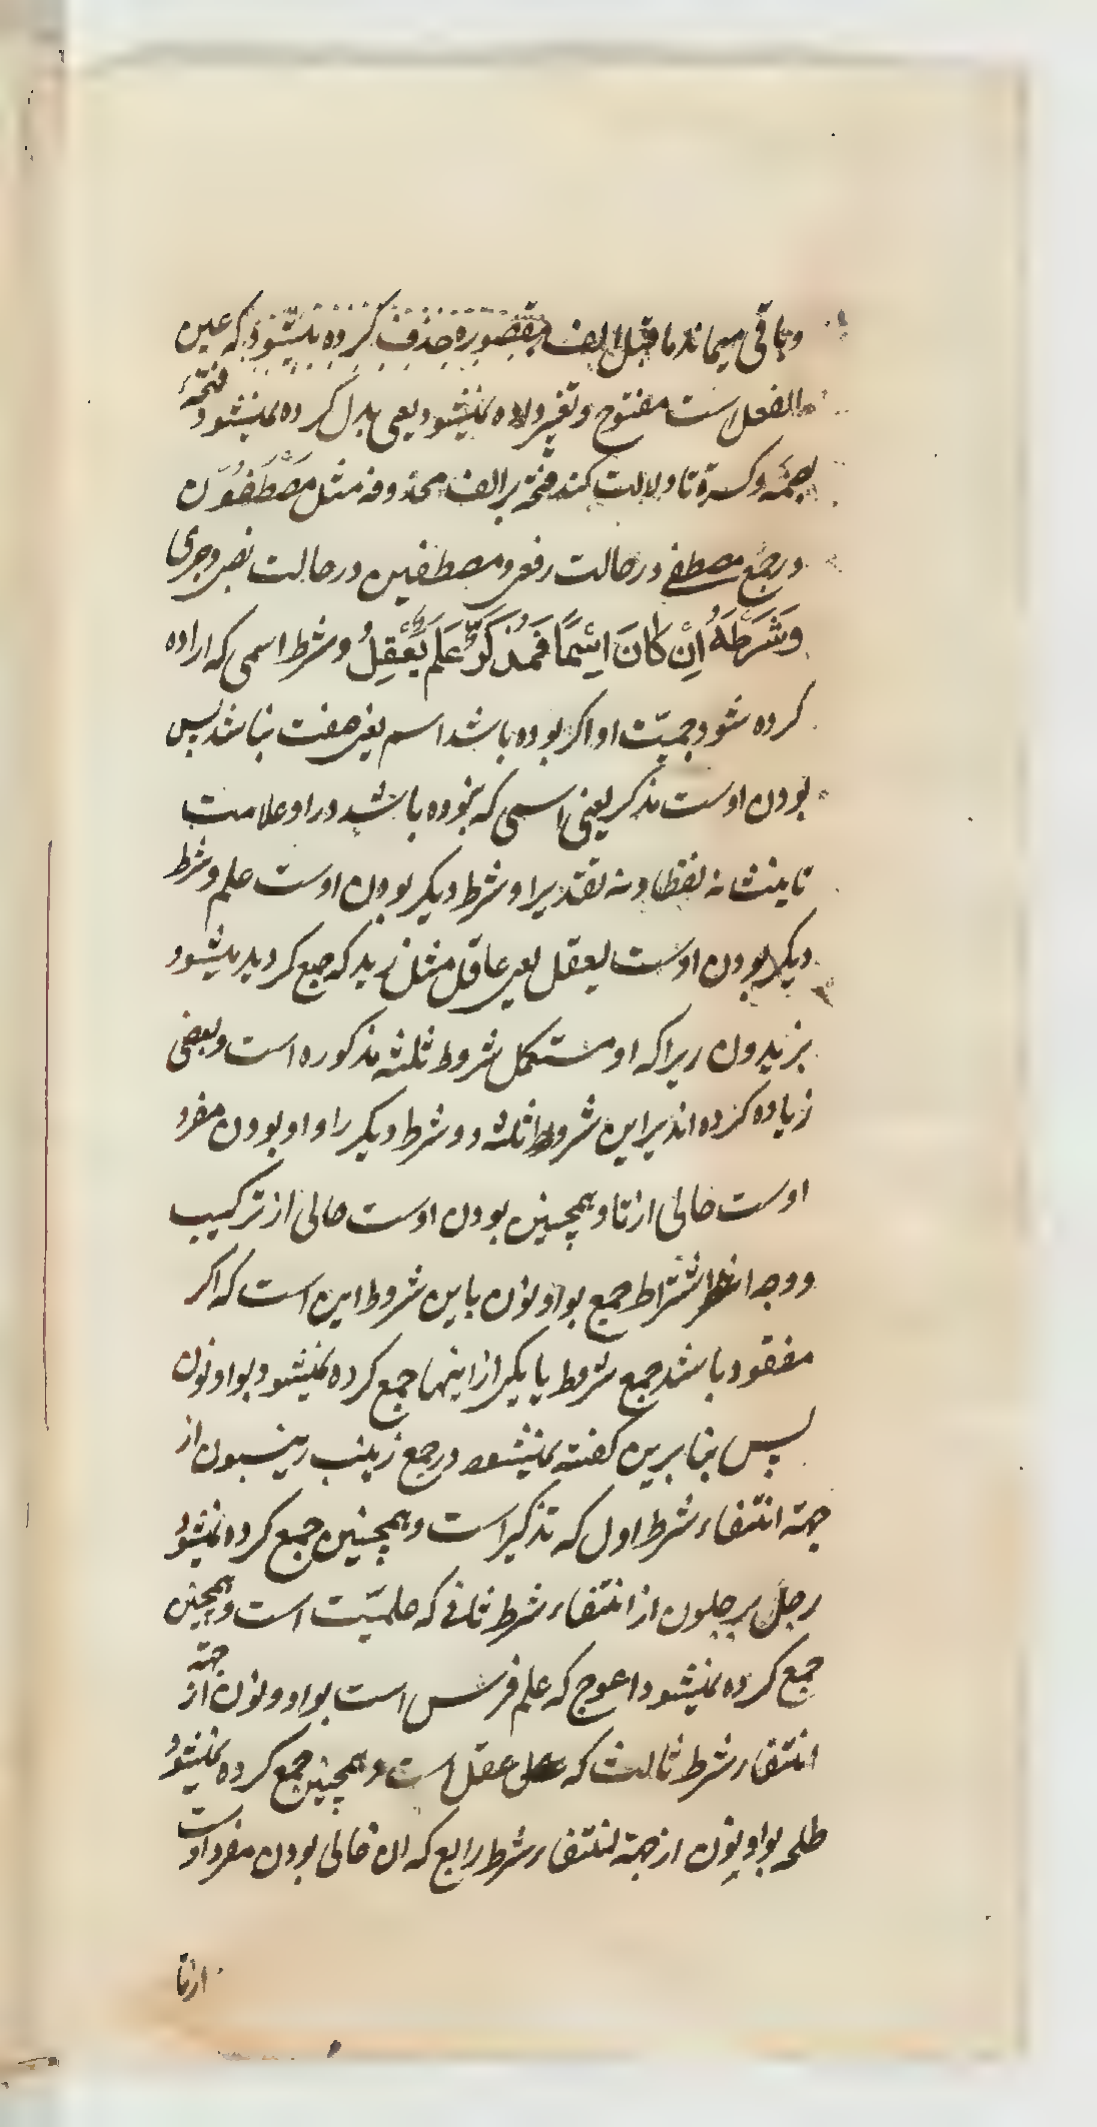 و باقی میماند ما قبل الف مقصوره حذف کرده میشود که عین
الفعل است مفتوح و تغییر داده نمیشود یعنی بدل کرده نمیشود فتحهٔ
بضمه و کسرة تا دلالت کند فتحة بر الف محذوفه مثل مُصْطَفَوْن
در جمع مصطفی در حالت رفعی و مصطفین در حالت نصبی و جری
وَشَرْطُهُ اِنْ كَانَ اِسْمًا فَمُذَكَّرٌ عَلَمٌ يَعْقِلُ و شرط اسمی که اراده
کرده شود جمعیّت او اکر بوده باشد اسم یعنی صفت نباشد پس
بودن اوست مذکر یعنی اسمی که نبوده باشد در او علامت
تانیث نه لفظا و نه تقدیرا و شرط دیکر بودن اوست علم و شرط
دیکر بودن اوست یعقل یعنی عاقل مثل زید که جمع کردید میشود
بزیدون زیرا که او مستکمل شروط ثلثه مذکوره است و بعضی
زیاده کرده اند بر این شروط ثلثه دو شرط دیکر را و او بودن مفرد
اوست خالی از تا و همچنین بودن اوست خالی از ترکیب
و وجه اشتراط جمع بواو نون باین شروط این است که اکر
مفقود باشد جمیع شروط یا یکی از اینها جمع کرده نمیشود بواو نون
پس بنا برین کفته نمیشود در جمع زینب زینبون از
جهة انتفاء شرط اول که تذکیر است و همچنین جمع کرده نمیشود
رجل برجلون از انتفاء شرط ثانی که علمیّت است و همچنین
جمع کرده نمیشود اعوج که علم فرس است بواو و نون از جهة
انتفاء شرط ثالث که عقل است و همچنین جمع کرده نمیشود
طلحه بواو نون از جهة انتفاء شرط رابع که ان خالی بودن مفرد اوست
از تا